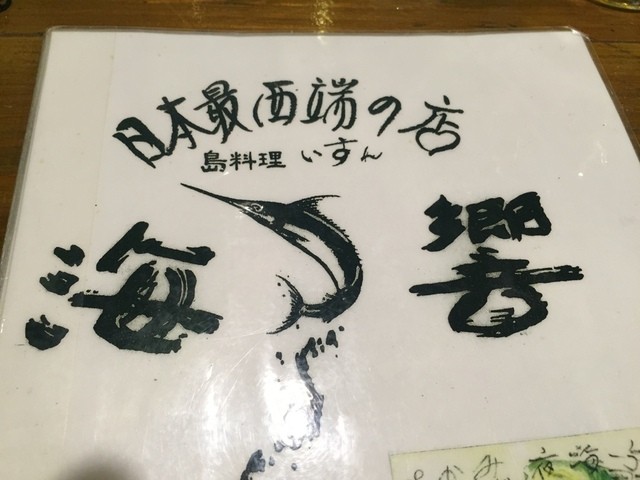 日本最西端の店
島料理 いすん
海響